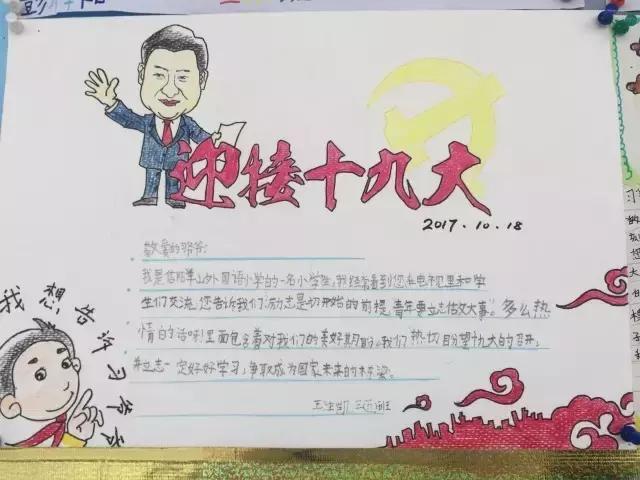 迎接十九大
2017.10.18
敬爱的爷爷:
我是信阳羊山外国语小学的一名小学生,我经常看到您在电视里和学
生们交流,您告诉我们:励志是一切开始的前提,青年要立志做大事。多么热
情的话啊!里面包含着对我们的美好期盼。我们热切盼望十九大的召开,
并立志一定好好学习,争取成为国家未来的栋梁。
三五班
我想告诉习爷爷